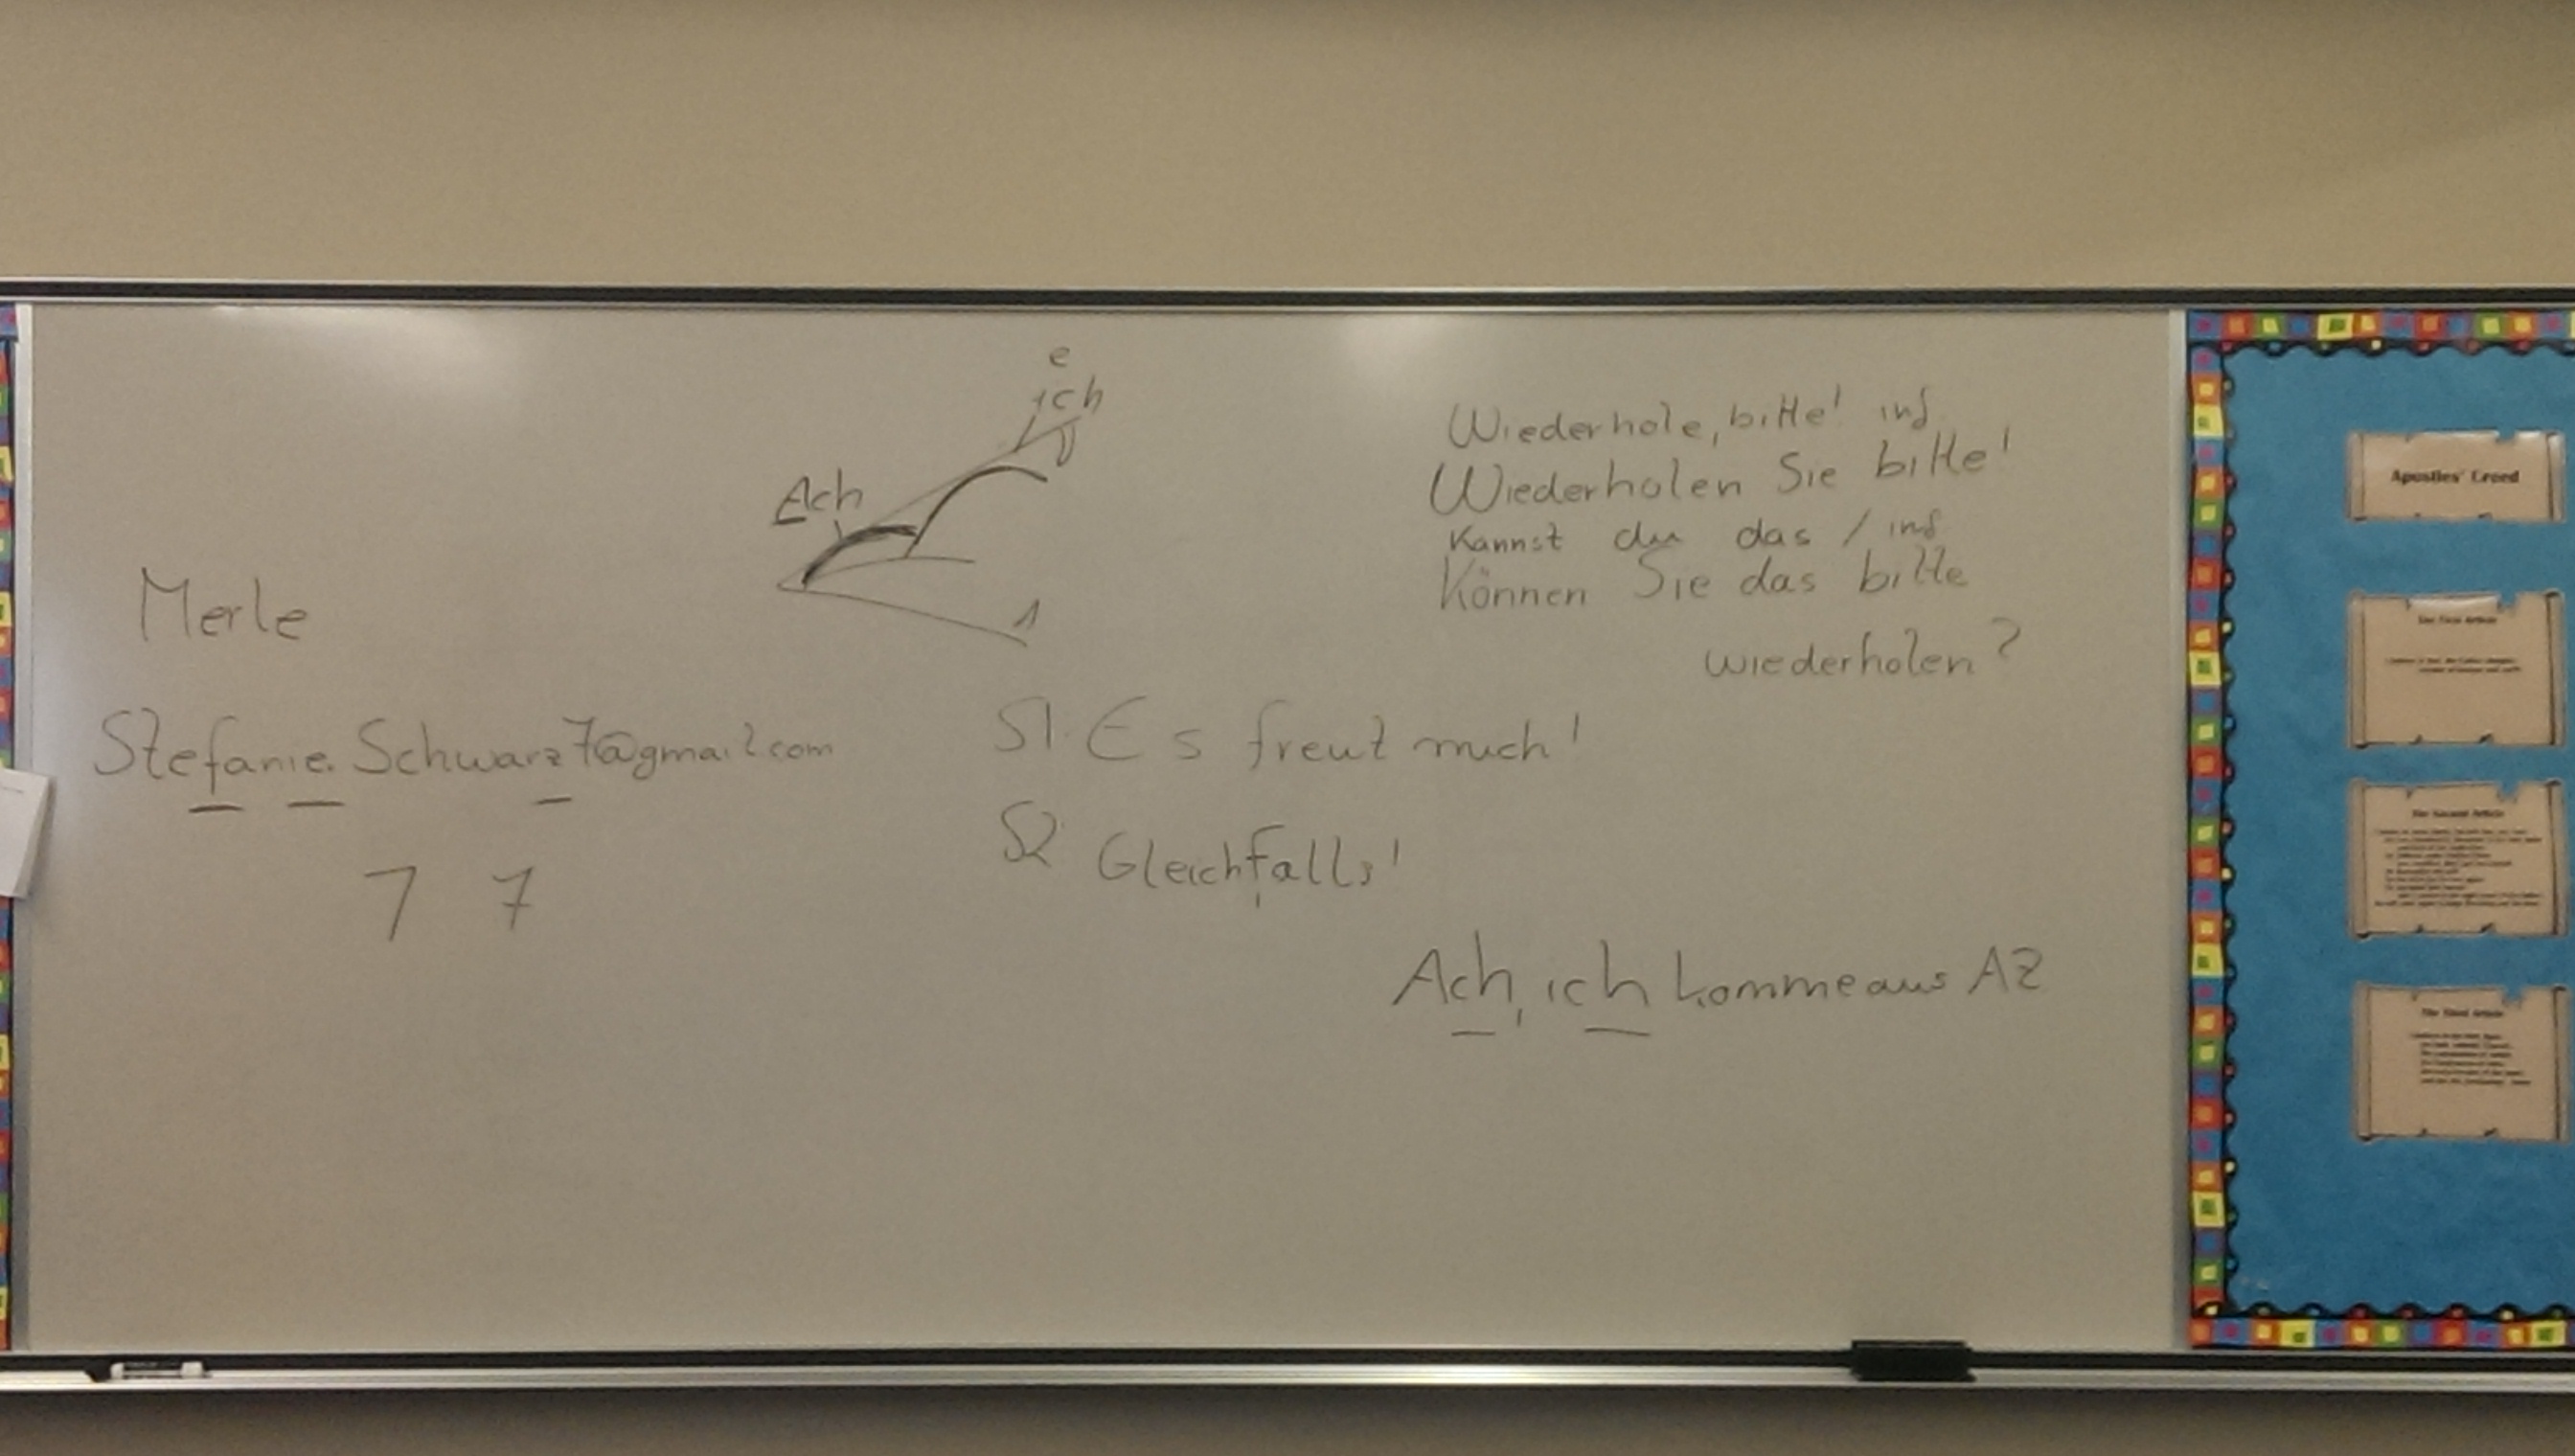 e
ich
Ach
Merle
Stefanie.Schwarz7@gmail.com
7 7
Wiederhole, bitte! inf
Wiederholen Sie bitte!
Kannst du das / inf
Können Sie das bitte
wiederholen?
S1. Es freut mich!
S2 Gleichfalls!
Ach, ich komme aus AZ
Apostles' Creed
The First Article
The Second Article
The Third Article